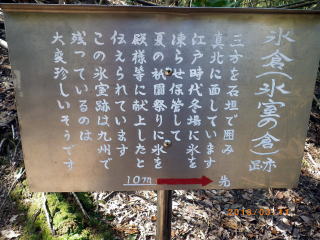 氷倉(氷室の倉)跡
三方を石垣で囲み
真北に面しています
江戸時代冬場に氷を
凍らし保管して
夏の祇園祭りに氷を
殿様等に献上したと
伝えられています
この氷室跡は九州で
残っているのは
大変珍しいそうです
10m
先